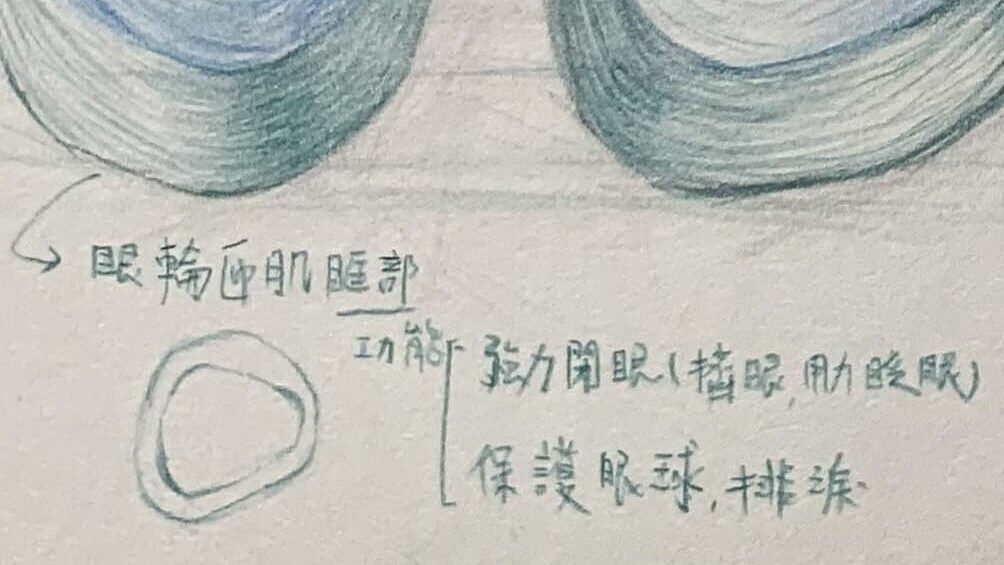 眼輪匝肌眶部
功能
強力閉眼(擠眼,用力眨眼)
保護眼球,排淚